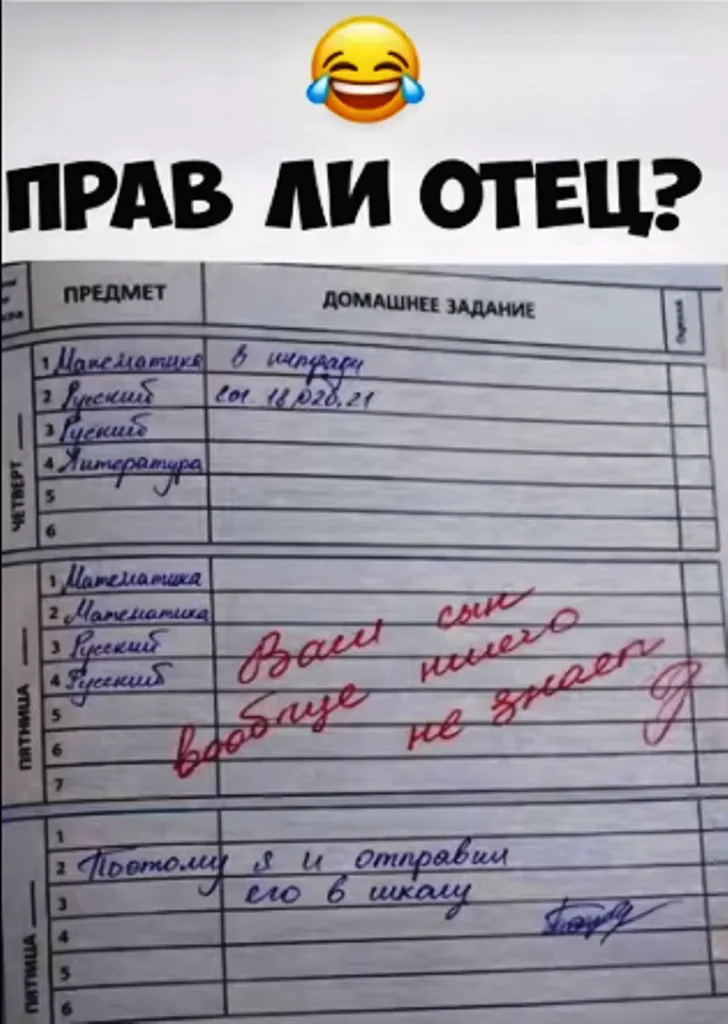 ПРАВ ЛИ ОТЕЦ?
ПРЕДМЕТ ДОМАШНЕЕ ЗАДАНИЕ
ЧЕТВЕРГ
1 Математика в тетради
2 Русский 18 21
3 Русский
4 Литература
5
6
ПЯТНИЦА
1 Математика
2 Математика
3 Русский
4 Русский
5
6
7
Ваш сын
вообще ничего
не знает
ПЯТНИЦА
1
2 Поэтому я и отправил
3 его в школу
4
5
6